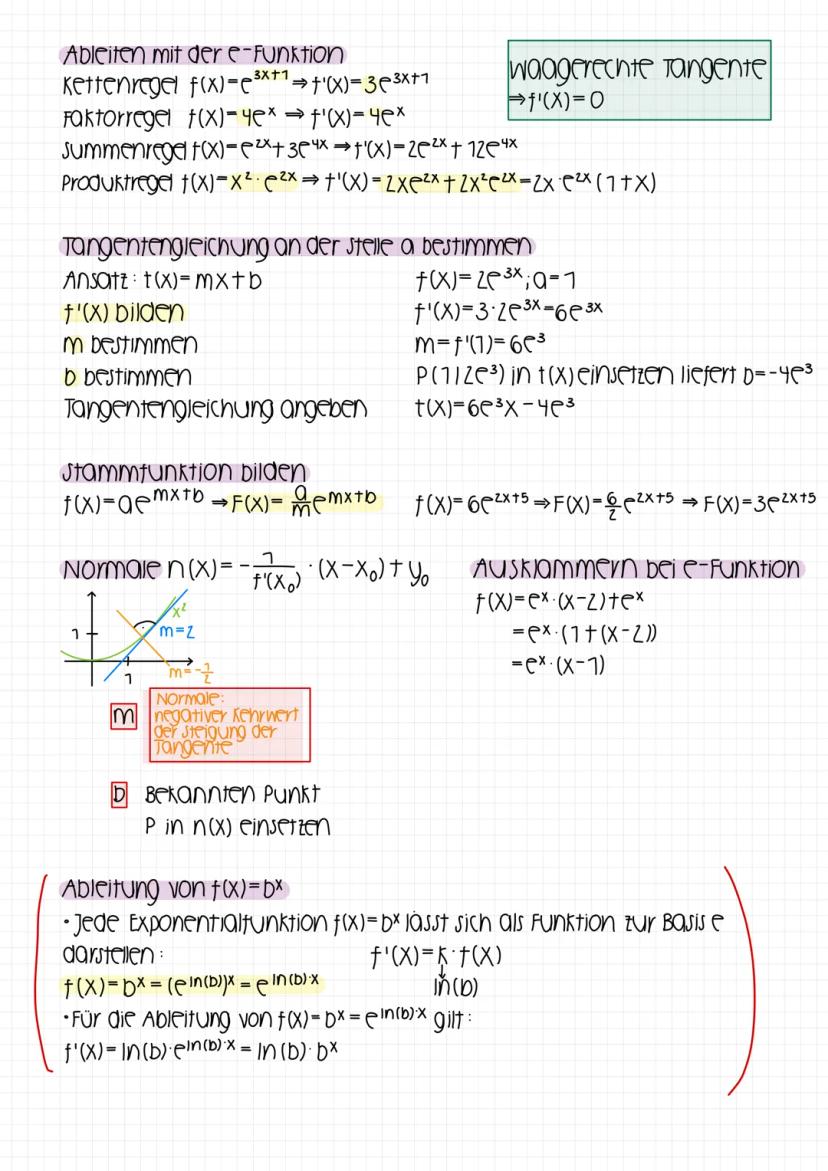 Ableiten mit der e-Funktion
Kettenregel f(x)=e³ˣ⁺¹ ⇒ f'(x)=3e³ˣ⁺¹
Faktorregel f(x)=4eˣ ⇒ f'(x)=4eˣ
Summenregel f(x)=e²ˣ+3e⁴ˣ ⇒ f'(x)=2e²ˣ+12e⁴ˣ
Produktregel f(x)=x²·e²ˣ ⇒ f'(x)=2xe²ˣ+2x²e²ˣ=2x·e²ˣ(1+x)
Waagerechte Tangente
⇒f'(x)=0
Tangentengleichung an der Stelle a bestimmen
Ansatz: t(x)=mx+b
f(x)=2e³ˣ; a=1
f'(x) bilden
f'(x)=3·2e³ˣ=6e³ˣ
m bestimmen
m=f'(1)=6e³
b bestimmen
P(1|2e³) in t(x) einsetzen liefert b=-4e³
Tangentengleichung angeben
t(x)=6e³x-4e³
Stammfunktion bilden
f(x)=aeᵐˣ⁺ᵇ ⇒ F(x)=a/m eᵐˣ⁺ᵇ
f(x)=6e²ˣ⁺⁵ ⇒ F(x)=6/2 e²ˣ⁺⁵ ⇒ F(x)=3e²ˣ⁺⁵
Normale n(x)=-1/f'(x₀)·(x-x₀)+y₀
x²
m=2
1
1
m=-1/2
m
Normale:
negativer Kehrwert
der Steigung der
Tangente
b Bekannten Punkt
P in n(x) einsetzen
Ausklammern bei e-Funktion
f(x)=eˣ·(x-2)+eˣ
=eˣ·(1+(x-2))
=eˣ·(x-1)
Ableitung von f(x)=bˣ
·Jede Exponentialfunktion f(x)=bˣ lässt sich als Funktion zur Basis e
darstellen:
f'(x)=k·f(x)
↓
ln(b)
f(x)=bˣ=(e^ln(b))ˣ=e^ln(b)·x
·Für die Ableitung von f(x)=bˣ=e^ln(b)·x gilt:
f'(x)=ln(b)·e^ln(b)·x=ln(b)·bˣ